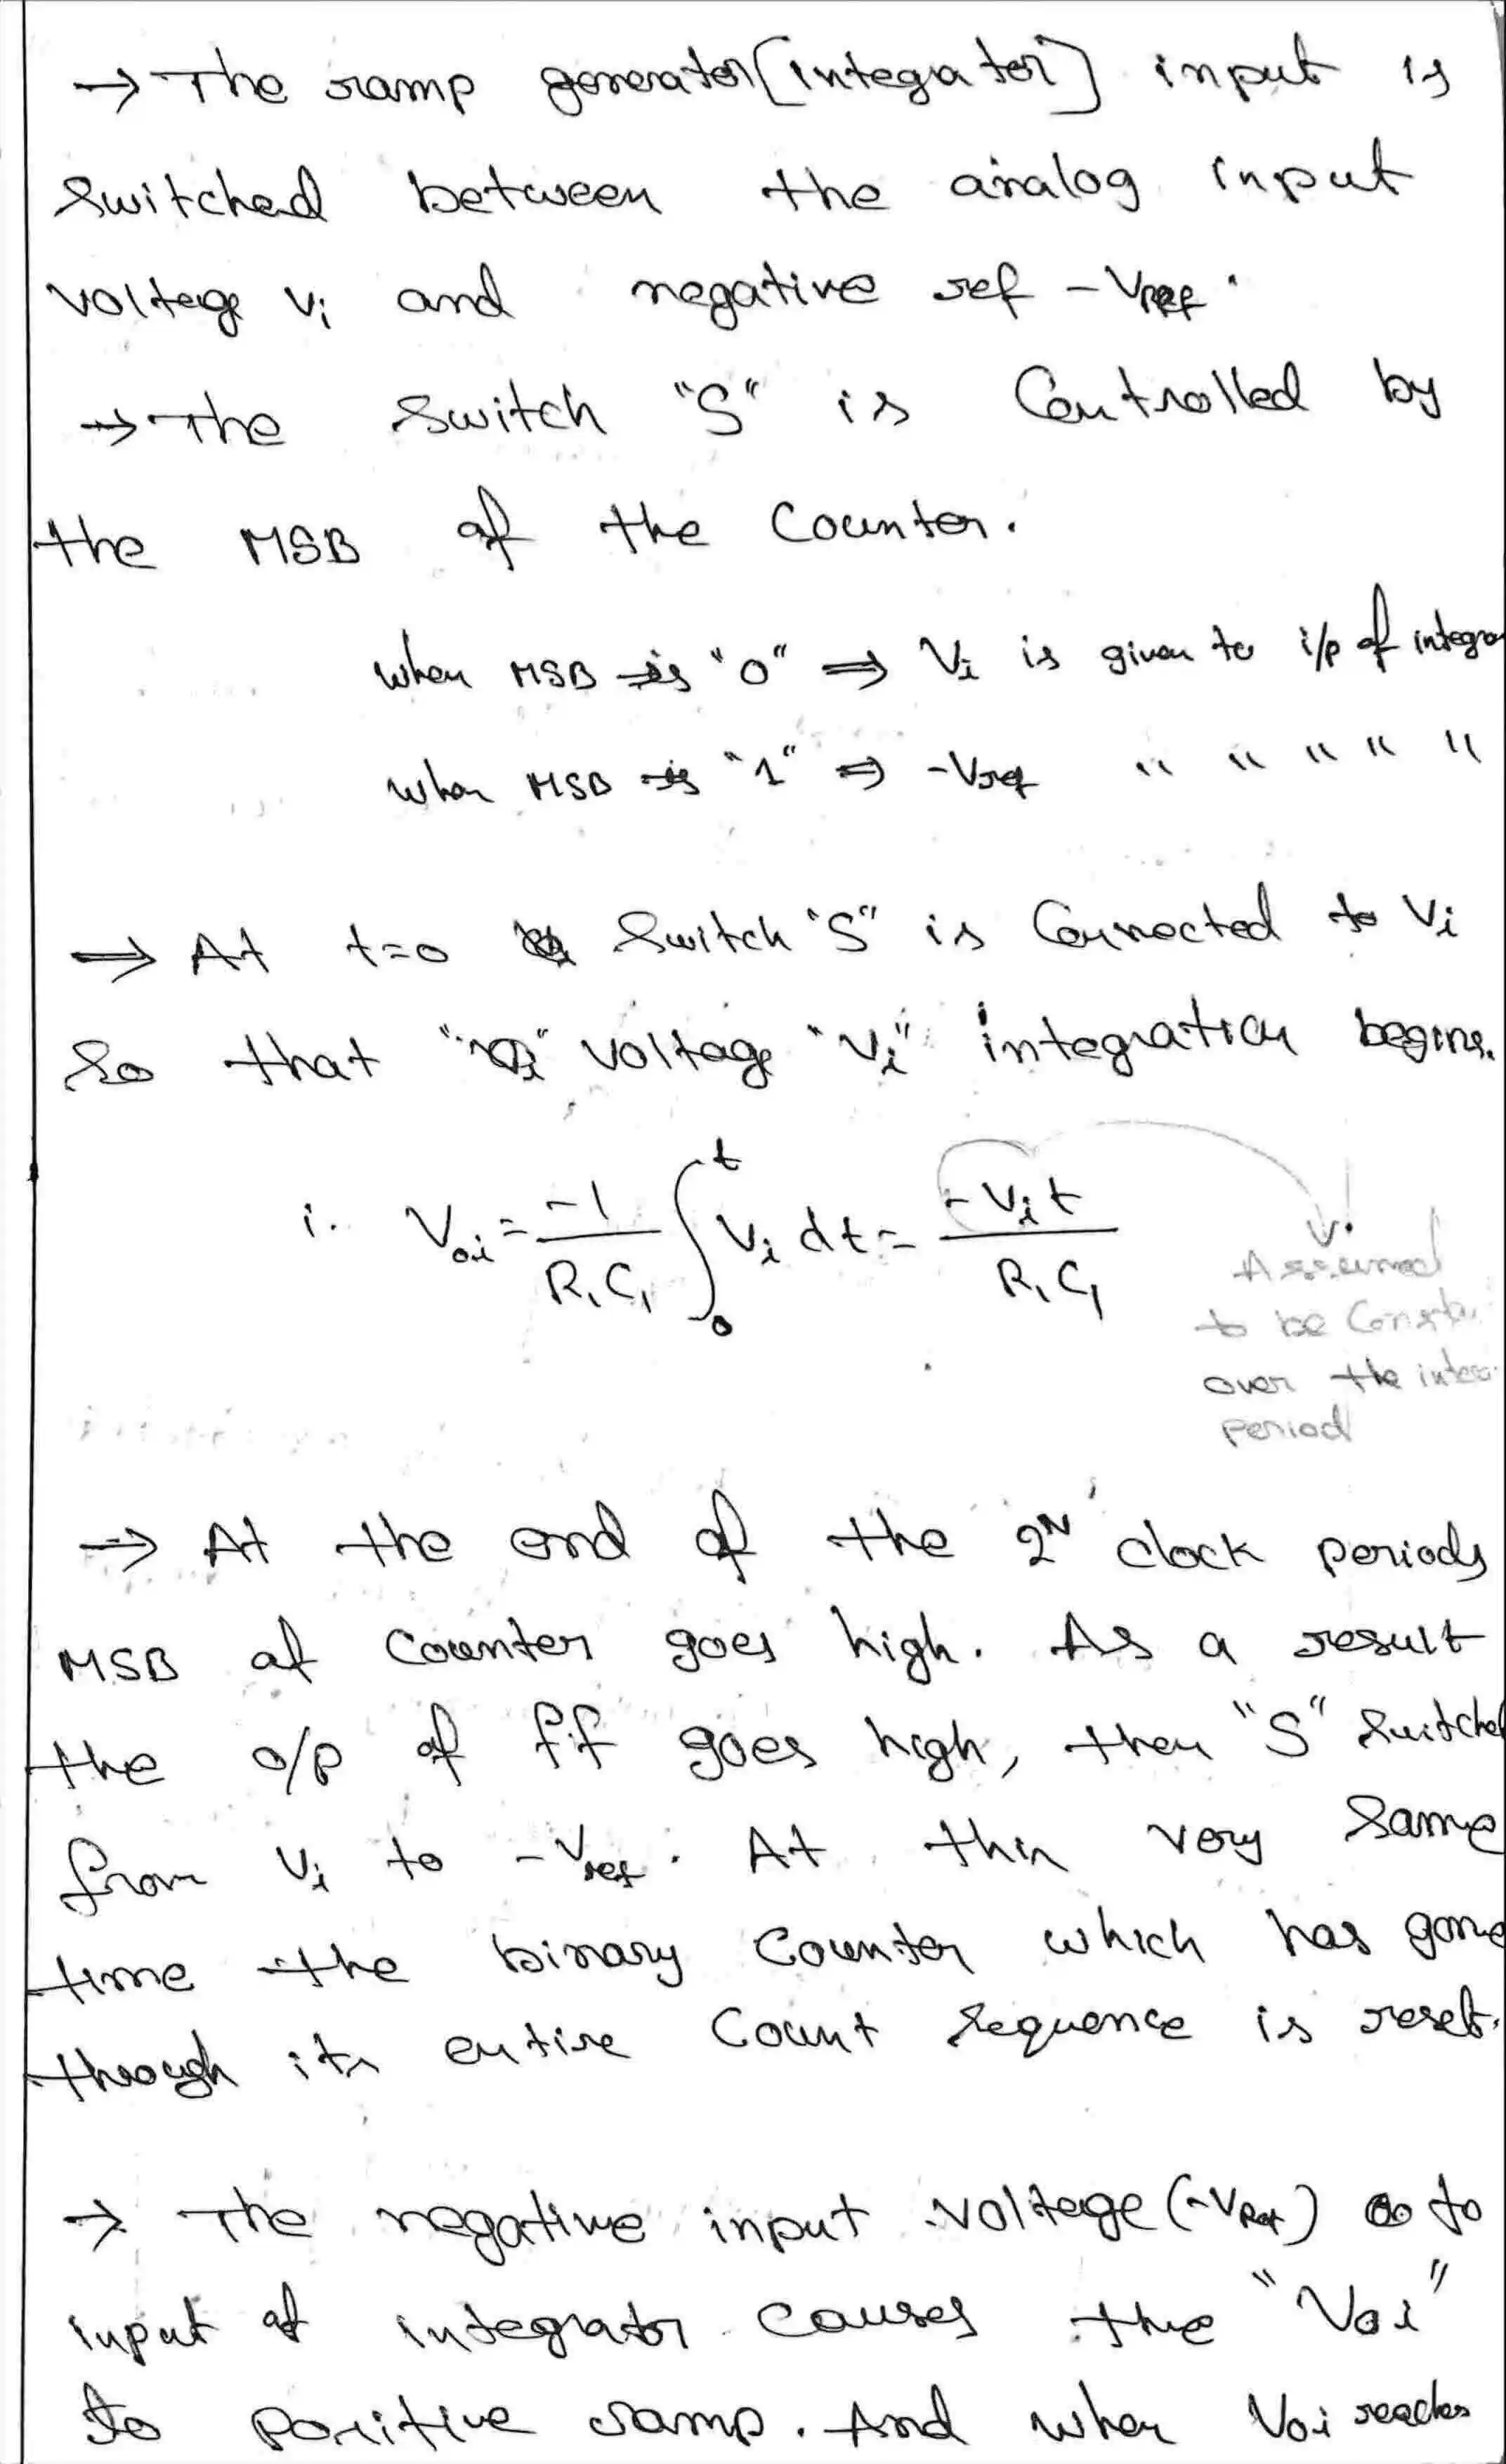 → The ramp generator [integrator] input is
switched between the analog input
voltage Vi and negative ref -VRef.
→ The switch "S" is controlled by
the MSB of the counter.
when MSB is "0" ⇒ Vi is given to i/p of integra
when MSB is "1" ⇒ -Vref " " " " "
⇒ At t=0 switch "S" is connected to Vi
so that voltage "Vi" integration begins.
i. Voi = -1/R1C1 ∫₀ᵗ Vi dt = -Vit/R1C1
Assumed
to be Consta
over the integ
period
→ At the end of the 2^N clock periods
MSB of counter goes high. As a result
the o/p of ff goes high, then "S" switches
from Vi to -Vref. At this very same
time the binary counter which has gone
through its entire count sequence is reset.
→ The negative input voltage (-VRef) to
input of integrator causes the "Voi"
to positive ramp. And when Voi reaches